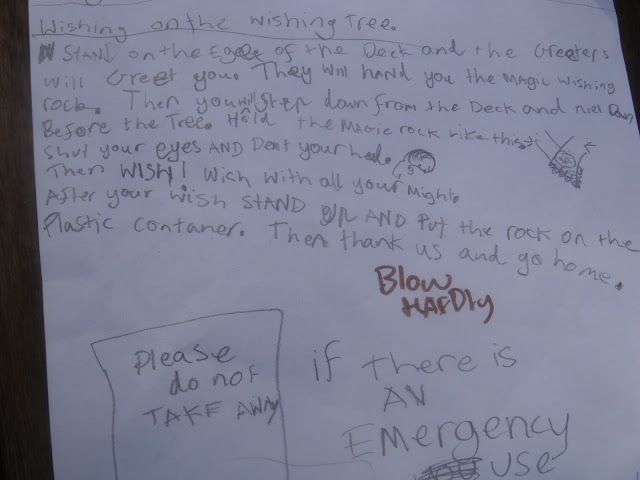 Wishing on the Wishing Tree.
STAND on the Egee of the Deck and the Greeters
will Greet you. They will hand you the magic wishing
rock. Then you will Step down from the Deck and niel Down
Before the Tree. Hold the magic rock like this
shut your eyes AND Dent your hed.
Then WISH! Wish with all your Might.
After your wish STAND AND Put the rock on the
Plastic contaner. Then thank us and go home.
Blow
HARDly
Please
do not
TAKE AWAY
if there is
AN
EMergency
use